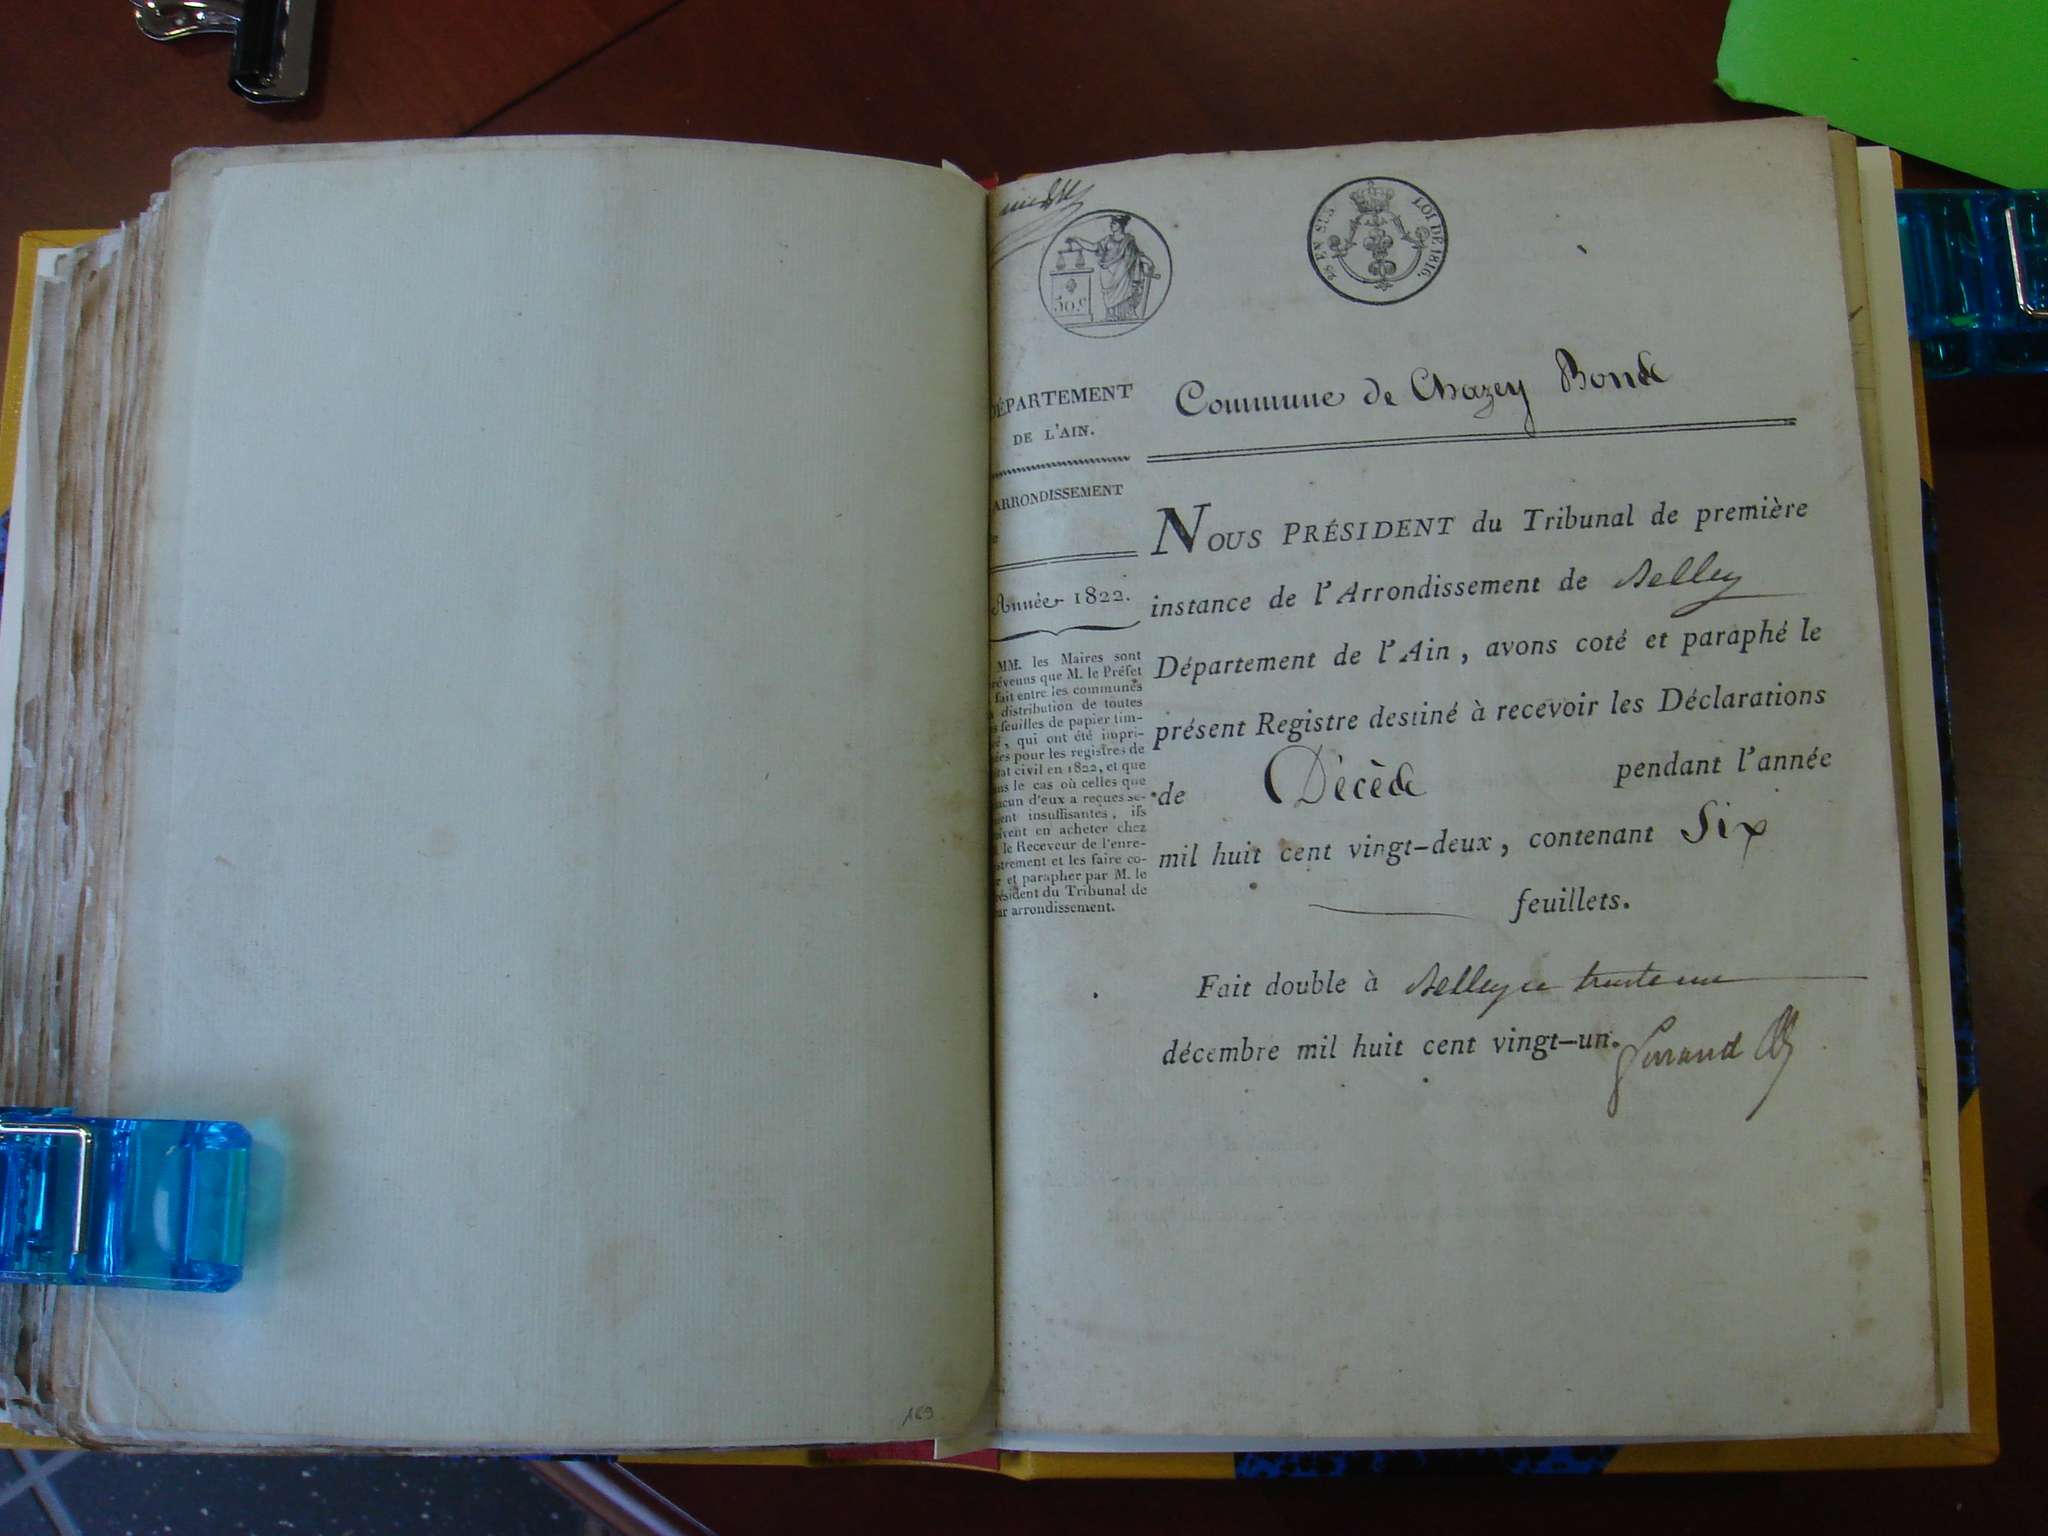 50 c.
25 EN SUS LOI DE 1816.
DÉPARTEMENT
DE L'AIN.
ARRONDISSEMENT
Année 1822.
MM. les Maires sont
prévenus que M. le Préfet
fait entre les communes
distribution de toutes
feuilles de papier tim-
, qui ont été impri-
pour les registres de
état civil en 1822, et que
le cas où celles que
chacun d'eux a reçues se-
insuffisantes, ils
en acheter chez
le Receveur de l'enre-
gistrement et les faire co-
et parapher par M. le
Président du Tribunal de
arrondissement.
Commune de Chazey Bons
NOUS PRÉSIDENT du Tribunal de première
instance de l'Arrondissement de Belley
Département de l'Ain, avons coté et paraphé le
présent Registre destiné à recevoir les Déclarations
de Décès pendant l'année
mil huit cent vingt-deux, contenant Six
feuillets.
Fait double à Belley ce trente un
décembre mil huit cent vingt-un.
169